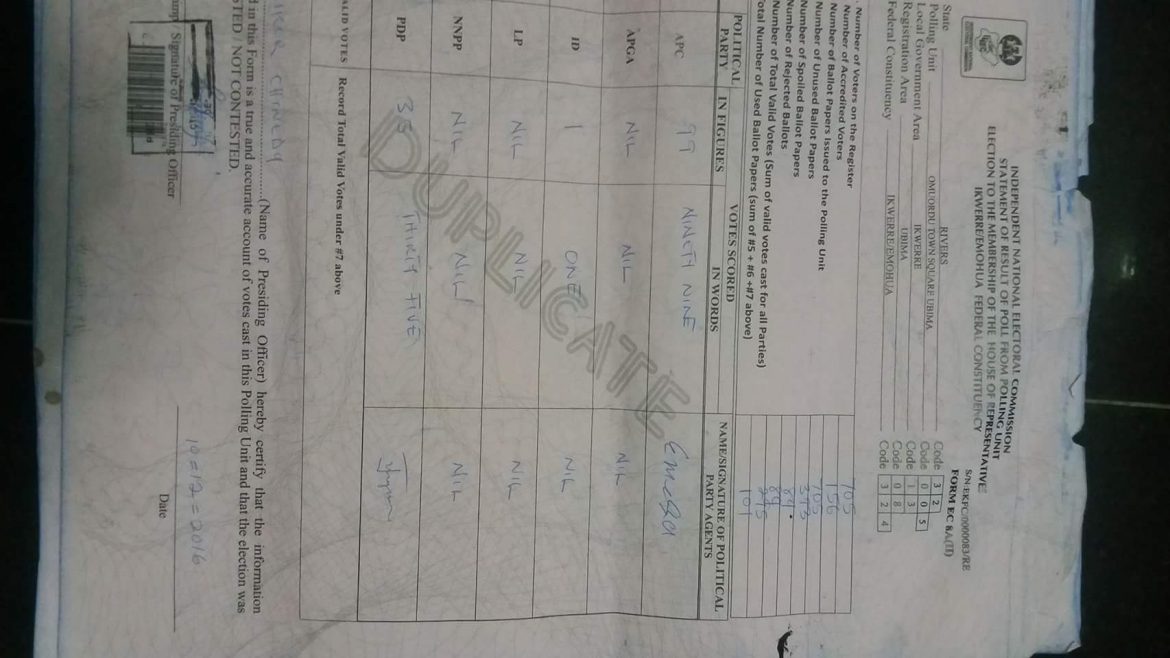 INDEPENDENT NATIONAL ELECTORAL COMMISSION
STATEMENT OF RESULT OF POLL FROM POLLING UNIT
ELECTION TO THE MEMBERSHIP OF THE HOUSE OF REPRESENTATIVE
IKWERRE/EMOHUA FEDERAL CONSTITUENCY
S/N:EKPC/0000083/RE
FORM EC 8A(II)
State RIVERS Code 3 2
Polling Unit OMUORDU TOWN SQUARE UBIMA Code 0 0 5
Local Government Area IKWERRE Code 1 3
Registration Area UBIMA Code 0 8
Federal Constituency IKWERRE/EMOHUA Code 3 2 4
Number of Voters on the Register 705
Number of Accredited Voters 156
Number of Ballot Papers issued to the Polling Unit 705
Number of Unused Ballot Papers
Number of Spoiled Ballot Papers
Number of Rejected Ballots
Number of Total Valid Votes (Sum of valid votes cast for all Parties)
Total Number of Used Ballot Papers (sum of #5 + #6 +#7 above)
POLITICAL PARTY VOTES SCORED NAME/SIGNATURE OF POLITICAL PARTY AGENTS
IN FIGURES IN WORDS
APC 99 NINETY NINE Emeka
APGA NIL NIL NIL
ID 1 ONE NIL
LP NIL NIL NIL
NNPP NIL NIL NIL
PDP 35 THIRTY FIVE
ALID VOTES Record Total Valid Votes under #7 above
DUPLICATE
CHINEDU (Name of Presiding Officer) hereby certify that the information
d in this Form is a true and accurate account of votes cast in this Polling Unit and that the election was
STED / NOT CONTESTED.
10=12=2016
Signature of Presiding Officer Date